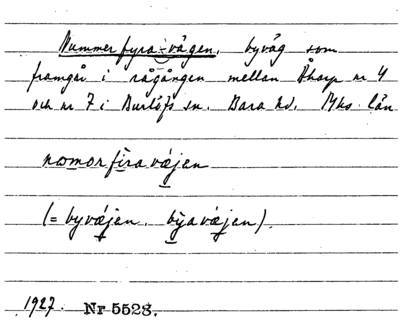 Nummerfyra-vägen, byväg som
framgår i rågången mellan Åkarp nr 4
och nr 7 i Burlöfs sn. Bara hd. Mhs län
nomorfira væjen
(= byvæjen, býavæjen).
1927. Nr 5528.